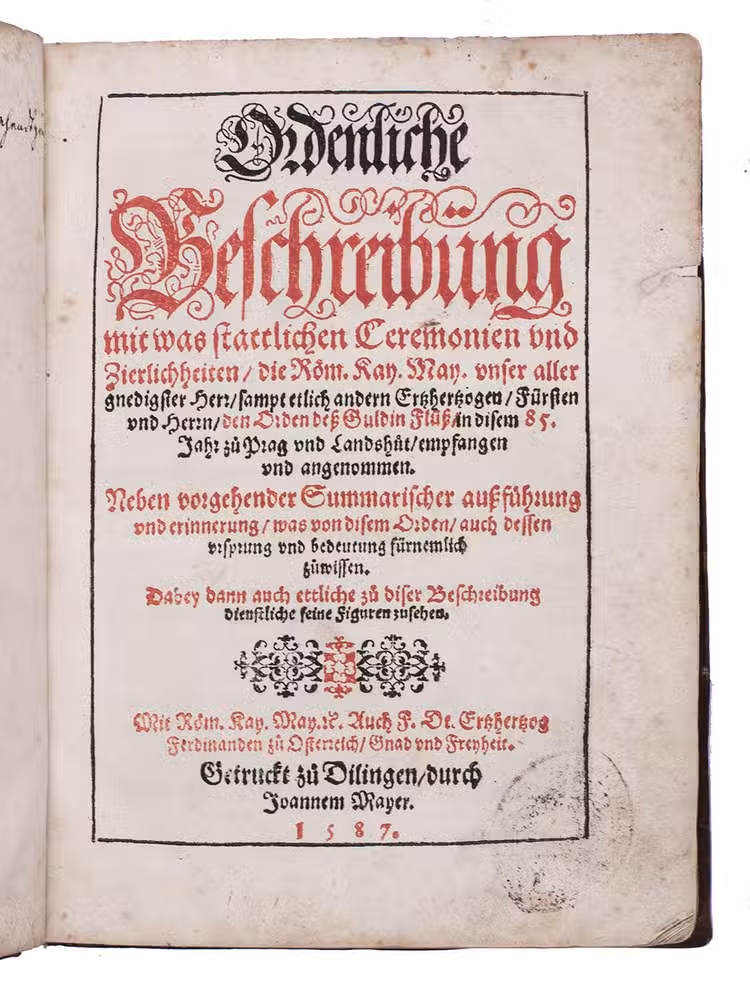 Ordenliche
Beschreibung
mit was stattlichen Ceremonien vnd
Zierlichheiten / die Röm. Kay. May. vnser aller
gnedigster Herr / sampt etlich andern Ertzhertzogen / Fürsten
vnd Herrn / den Orden deß Guldin Flüß / in disem 85.
Jahr zů Prag vnd Landshůt / empfangen
vnd angenommen.
Neben vorgehender Summarischer außführung
vnd erinnerung / was von disem Orden / auch dessen
vrsprung vnd bedeutung fürnemlich
zůwissen.
Dabey dann auch ettliche zů diser Beschreibung
dienstliche feine Figuren zusehen.
Mit Röm. Kay. May. ꝛc. Auch F. De. Ertzhertzog
Ferdinanden zů Osterreich / Gnad vnd Freyheit.
Getruckt zů Dilingen / durch
Joannem Mayer.
1587.